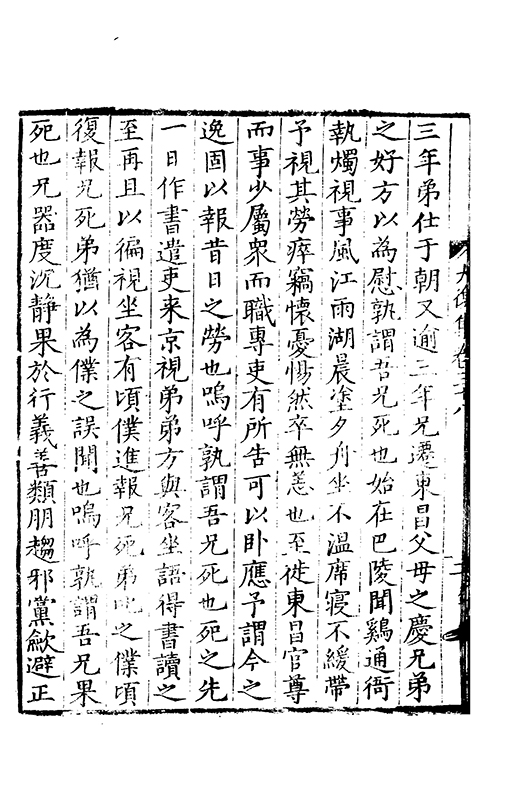 三年弟仕于朝又逾二年兄遷東昌父母之慶兄弟
之好方以為慰孰謂吾兄死也始在巴陵聞鷄通衙
執燭視事風江雨湖晨塗夕舟坐不溫席寢不緩帶
予視其勞瘁竊懷憂惕然卒無恙也至徙東昌官尊
而事少屬衆而職專吏有所告可以卧應予謂今之
逸固以報昔日之勞也嗚呼孰謂吾兄死也死之先
一日作書遣吏来京視弟弟方與客坐語得書讀之
至再且以徧視坐客有頃僕進報兄死弟叱之僕頃
復報兄死弟猶以為僕之誤聞也嗚呼孰謂吾兄果
死也兄器度沉静果於行義善類朋趨邪黨歛避正
卷三十八
二